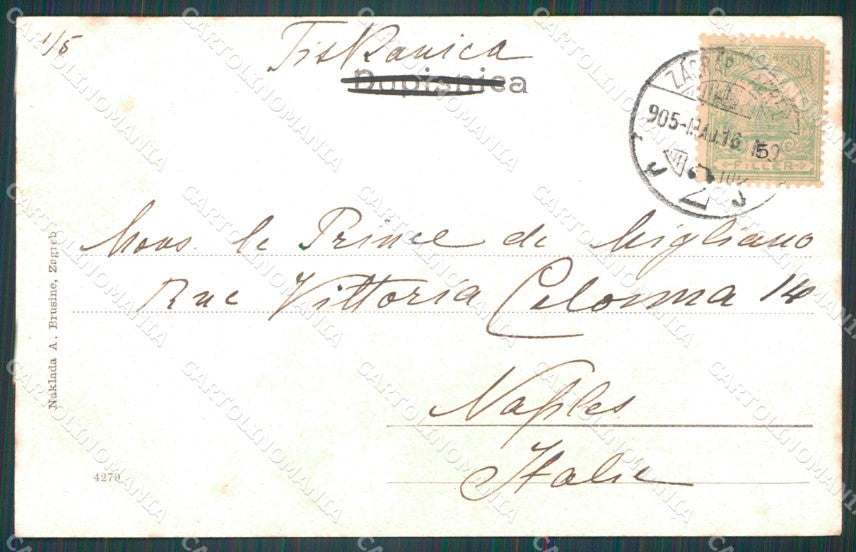 1/5
Tiskanica
Dopisnica
ZÁGRÁB
905
5
FILLER
Mons. le Prince de Migliano
Rue Vittoria Colonna 14
Naples
Italie
Naklada A. Brusine, Zagreb
4279
CARTOLINOMANIA